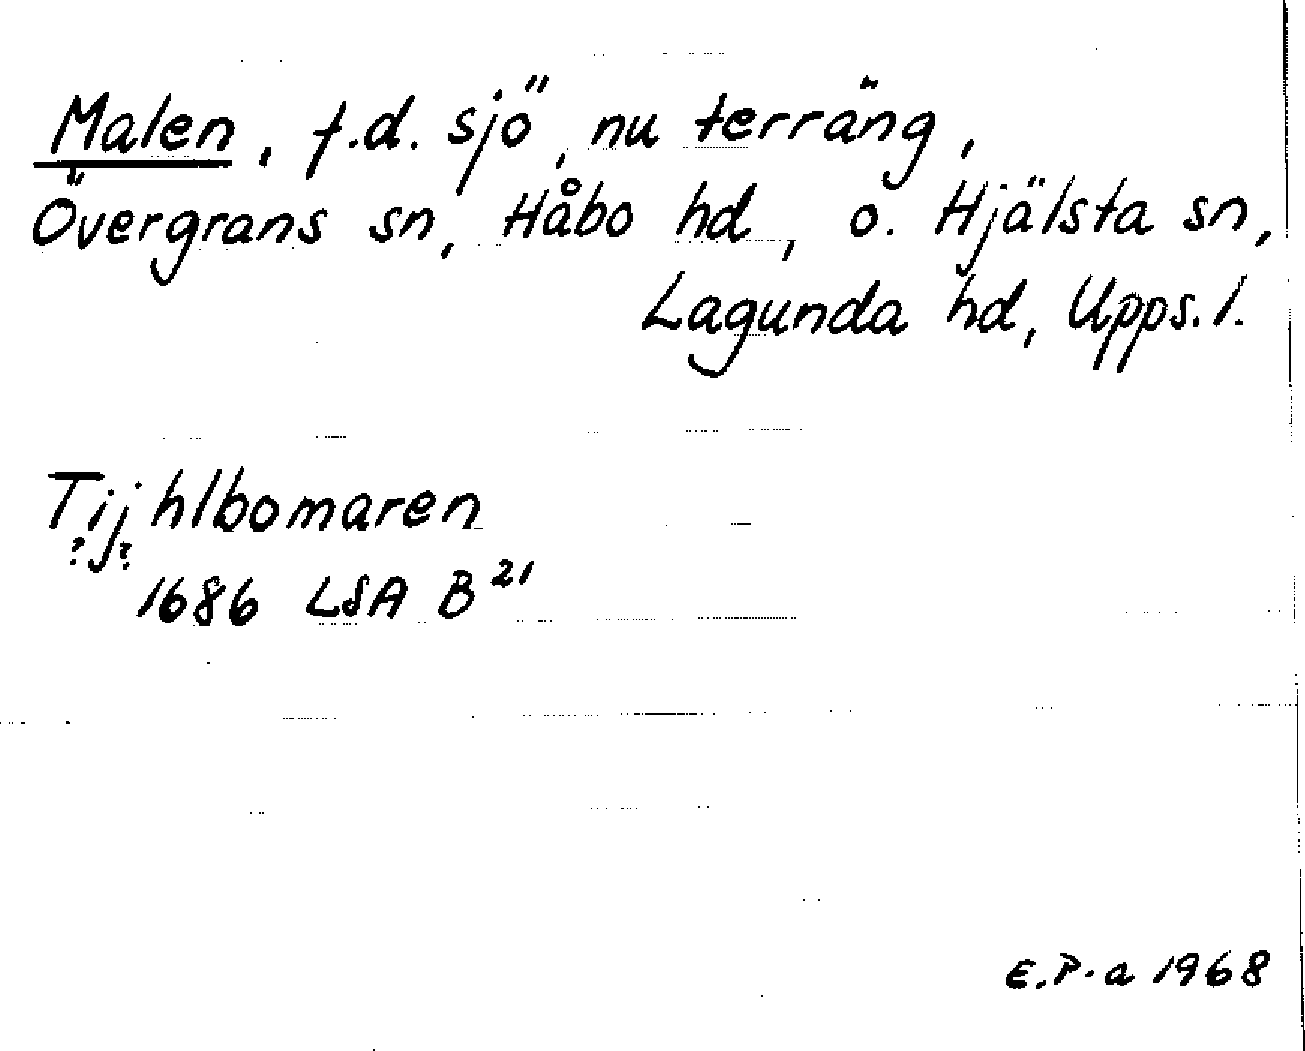 Malen, f.d. sjö, nu terräng,
Övergrans sn, Håbo hd, o. Hjälsta sn,
Lagunda hd, Upps. l.
Tijhlbomaren
? ?
1686 LSA B²¹
E.P-a 1968